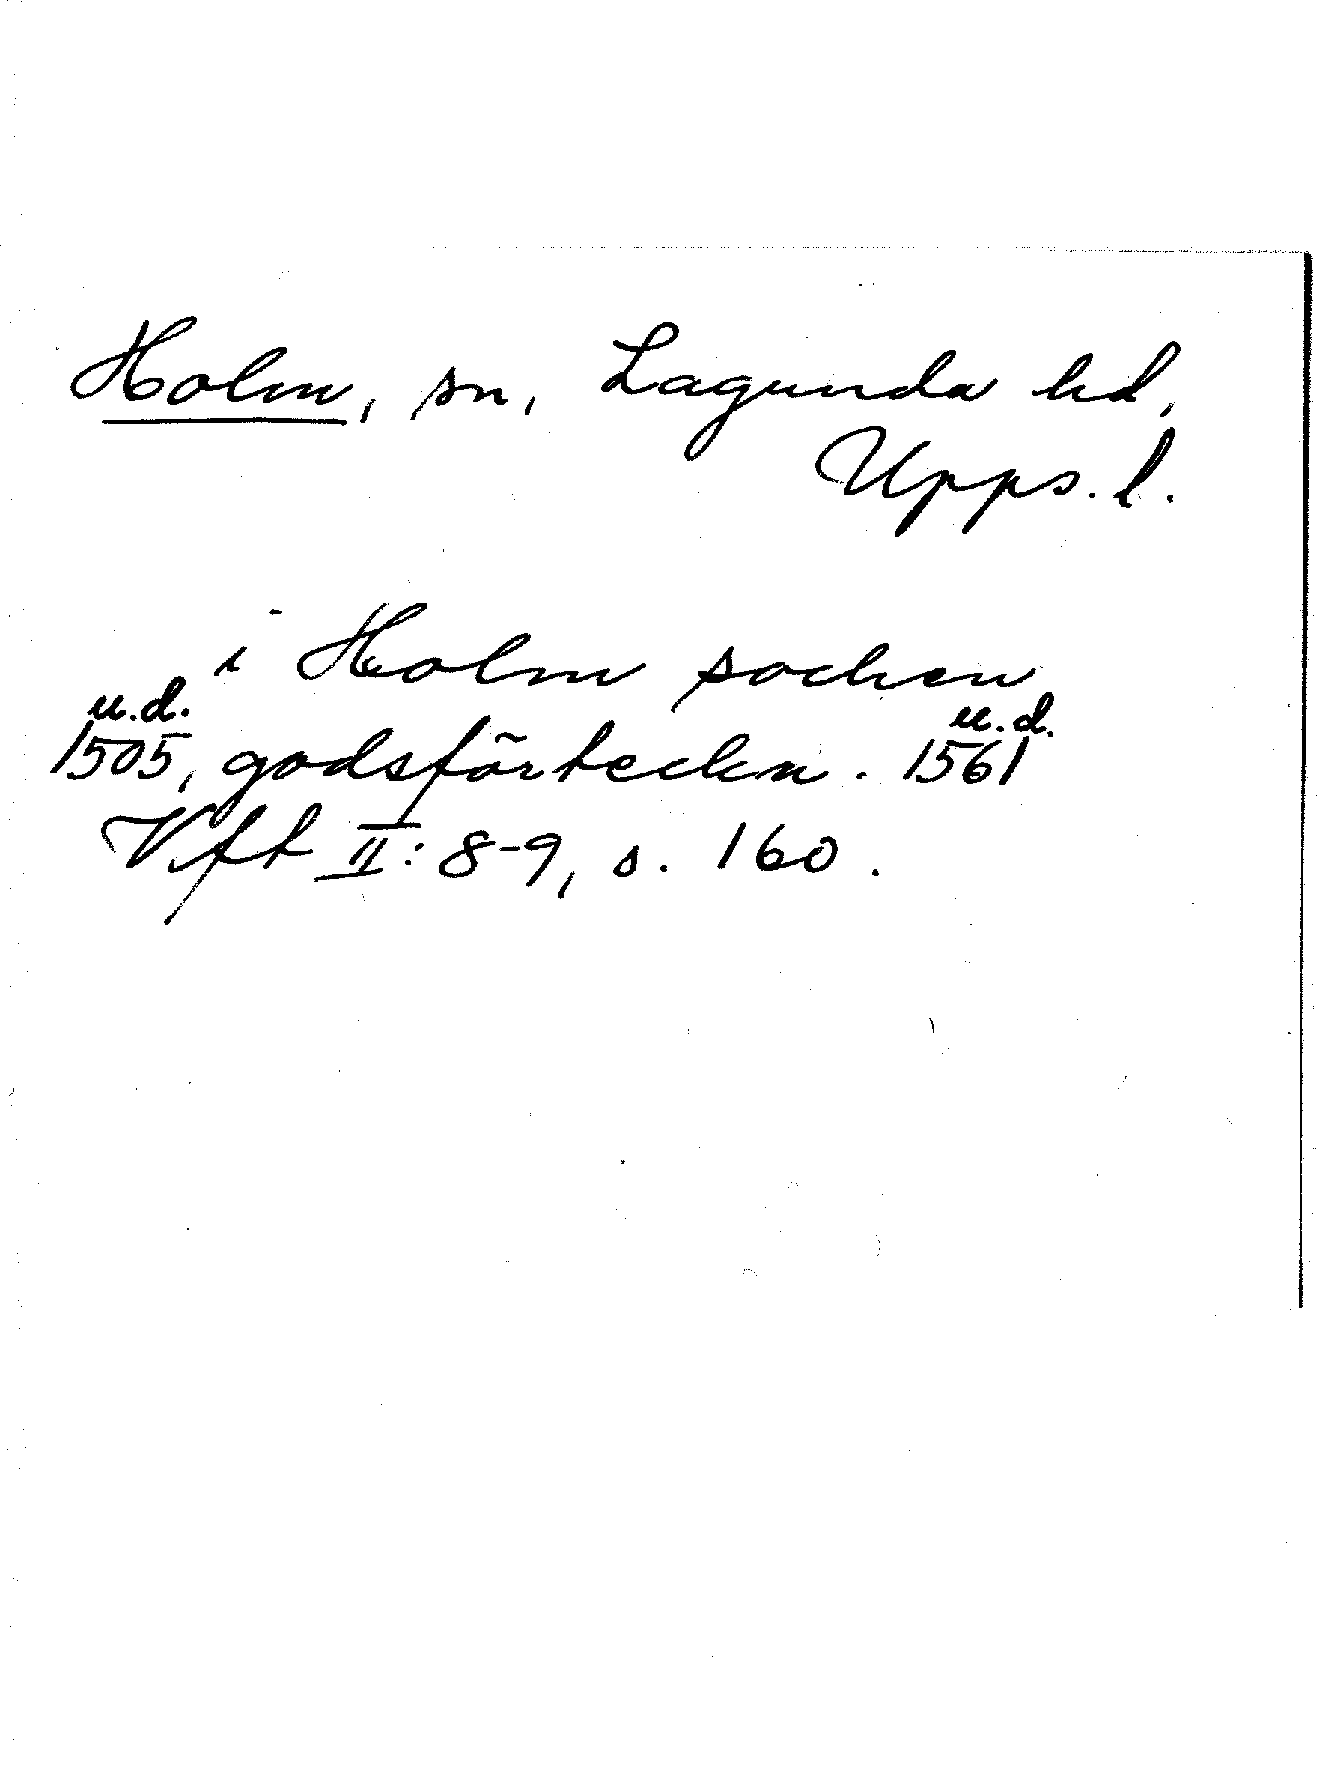 Holm, sn, Lagunda hd,
Upps. l.
i Holm sochen
u.d. u.d.
1505, godsförteckn. 1561
Vft II: 8-9, s. 160.